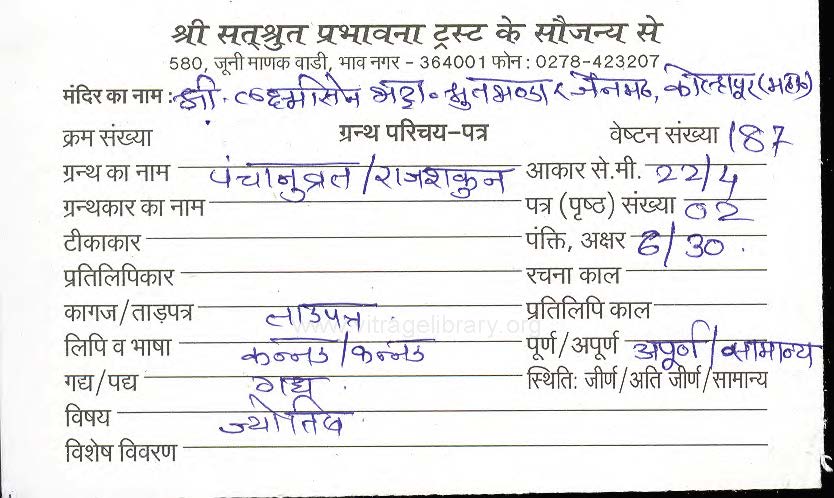 श्री सत्श्रुत प्रभावना ट्रस्ट के सौजन्य से
580, जूनी माणक वाडी, भाव नगर - 364001 फोन : 0278-423207
मंदिर का नाम : श्री. लक्ष्मीसेन भट्टा. श्रुतभण्डार जैनमठ, कोल्हापूर (महा.)
क्रम संख्या ग्रन्थ परिचय-पत्र वेष्टन संख्या 187
ग्रन्थ का नाम पंचानुव्रत/राजशकुन आकार से.मी. 22/4
ग्रन्थकार का नाम पत्र (पृष्ठ) संख्या 02
टीकाकार पंक्ति, अक्षर 6/30.
प्रतिलिपिकार रचना काल
कागज/ताड़पत्र ताडपत्र. प्रतिलिपि काल
www.vitragelibrary.org
लिपि व भाषा कन्नड/कन्नड पूर्ण/अपूर्ण अपूर्ण/सामान्य
गद्य/पद्य गद्य. स्थिति: जीर्ण/अति जीर्ण/सामान्य
विषय ज्योतिष
विशेष विवरण